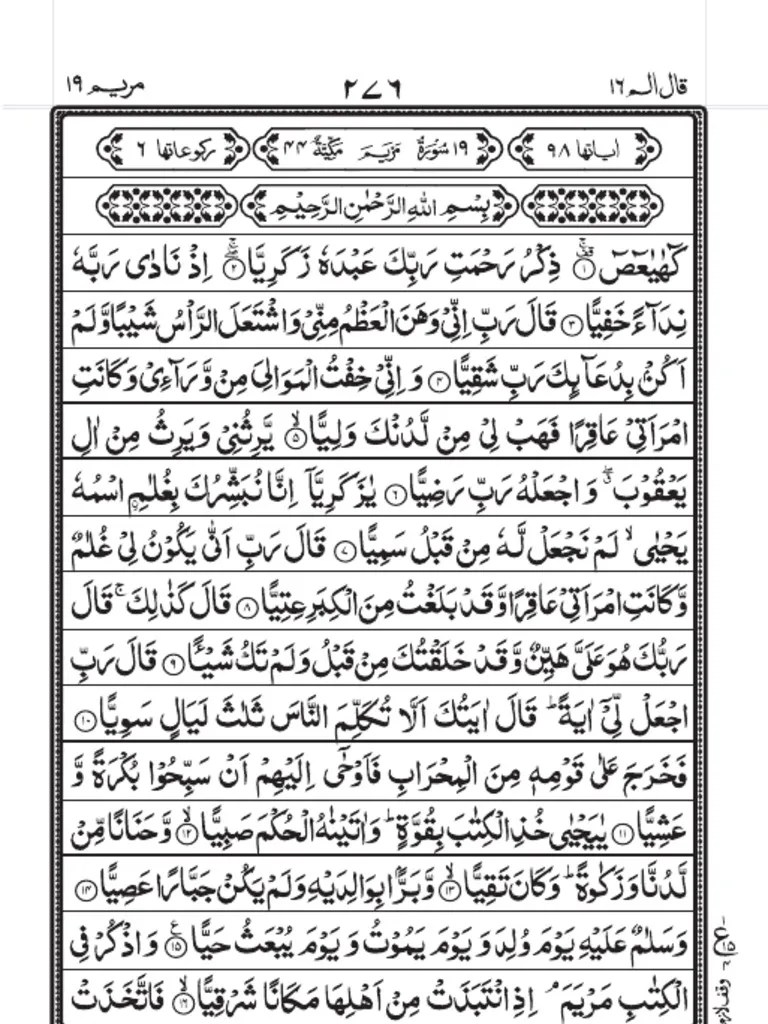 قال الم ١٦ ٢٧٦ مريم ١٩
اٰیاتها ٩٨ ١٩ سُوْرَةُ مَرْيَمَ مَكِّيَّةٌ ٤٤ رکوعاتها ٦
بِسْمِ اللهِ الرَّحْمٰنِ الرَّحِيْمِ
كٓهٰيٰعٓصٓ ۚ ١ ذِكْرُ رَحْمَتِ رَبِّكَ عَبْدَهٗ زَكَرِيَّا ۚ ٢ اِذْ نَادٰى رَبَّهٗ
نِدَآءً خَفِيًّا ٣ قَالَ رَبِّ اِنِّيْ وَهَنَ الْعَظْمُ مِنِّيْ وَاشْتَعَلَ الرَّاْسُ شَيْبًا وَّلَمْ
اَكُنْۢ بِدُعَآئِكَ رَبِّ شَقِيًّا ٤ وَ اِنِّيْ خِفْتُ الْمَوَالِيَ مِنْ وَّرَآءِيْ وَ كَانَتِ
امْرَاَتِيْ عَاقِرًا فَهَبْ لِيْ مِنْ لَّدُنْكَ وَلِيًّا ۙ ٥ يَّرِثُنِيْ وَيَرِثُ مِنْ اٰلِ
يَعْقُوْبَ ۖ وَ اجْعَلْهُ رَبِّ رَضِيًّا ٦ يٰزَكَرِيَّاۤ اِنَّا نُبَشِّرُكَ بِغُلٰمِ ࣙاسْمُهٗ
يَحْيٰى ۙ لَمْ نَجْعَلْ لَّهٗ مِنْ قَبْلُ سَمِيًّا ٧ قَالَ رَبِّ اَنّٰى يَكُوْنُ لِيْ غُلٰمٌ
وَّكَانَتِ امْرَاَتِيْ عَاقِرًا وَّقَدْ بَلَغْتُ مِنَ الْكِبَرِ عِتِيًّا ٨ قَالَ كَذٰلِكَ ۚ قَالَ
رَبُّكَ هُوَ عَلَيَّ هَيِّنٌ وَّقَدْ خَلَقْتُكَ مِنْ قَبْلُ وَلَمْ تَكُ شَيْـًٔا ٩ قَالَ رَبِّ
اجْعَلْ لِّيْۤ اٰيَةً ؕ قَالَ اٰيَتُكَ اَلَّا تُكَلِّمَ النَّاسَ ثَلٰثَ لَيَالٍ سَوِيًّا ١٠
فَخَرَجَ عَلٰى قَوْمِهٖ مِنَ الْمِحْرَابِ فَاَوْحٰۤى اِلَيْهِمْ اَنْ سَبِّحُوْا بُكْرَةً وَّ
عَشِيًّا ١١ يٰيَحْيٰى خُذِ الْكِتٰبَ بِقُوَّةٍ ؕ وَاٰتَيْنٰهُ الْحُكْمَ صَبِيًّا ۙ ١٢ وَّحَنَانًا مِّنْ
لَّدُنَّا وَزَكٰوةً ؕ وَكَانَ تَقِيًّا ۙ ١٣ وَّبَرًّۢا بِوَالِدَيْهِ وَلَمْ يَكُنْ جَبَّارًا عَصِيًّا ١٤
وَسَلٰمٌ عَلَيْهِ يَوْمَ وُلِدَ وَ يَوْمَ يَمُوْتُ وَ يَوْمَ يُبْعَثُ حَيًّا ١٥ وَ اذْكُرْ فِي
الْكِتٰبِ مَرْيَمَ ۘ اِذِ انْتَبَذَتْ مِنْ اَهْلِهَا مَكَانًا شَرْقِيًّا ۙ ١٦ فَاتَّخَذَتْ